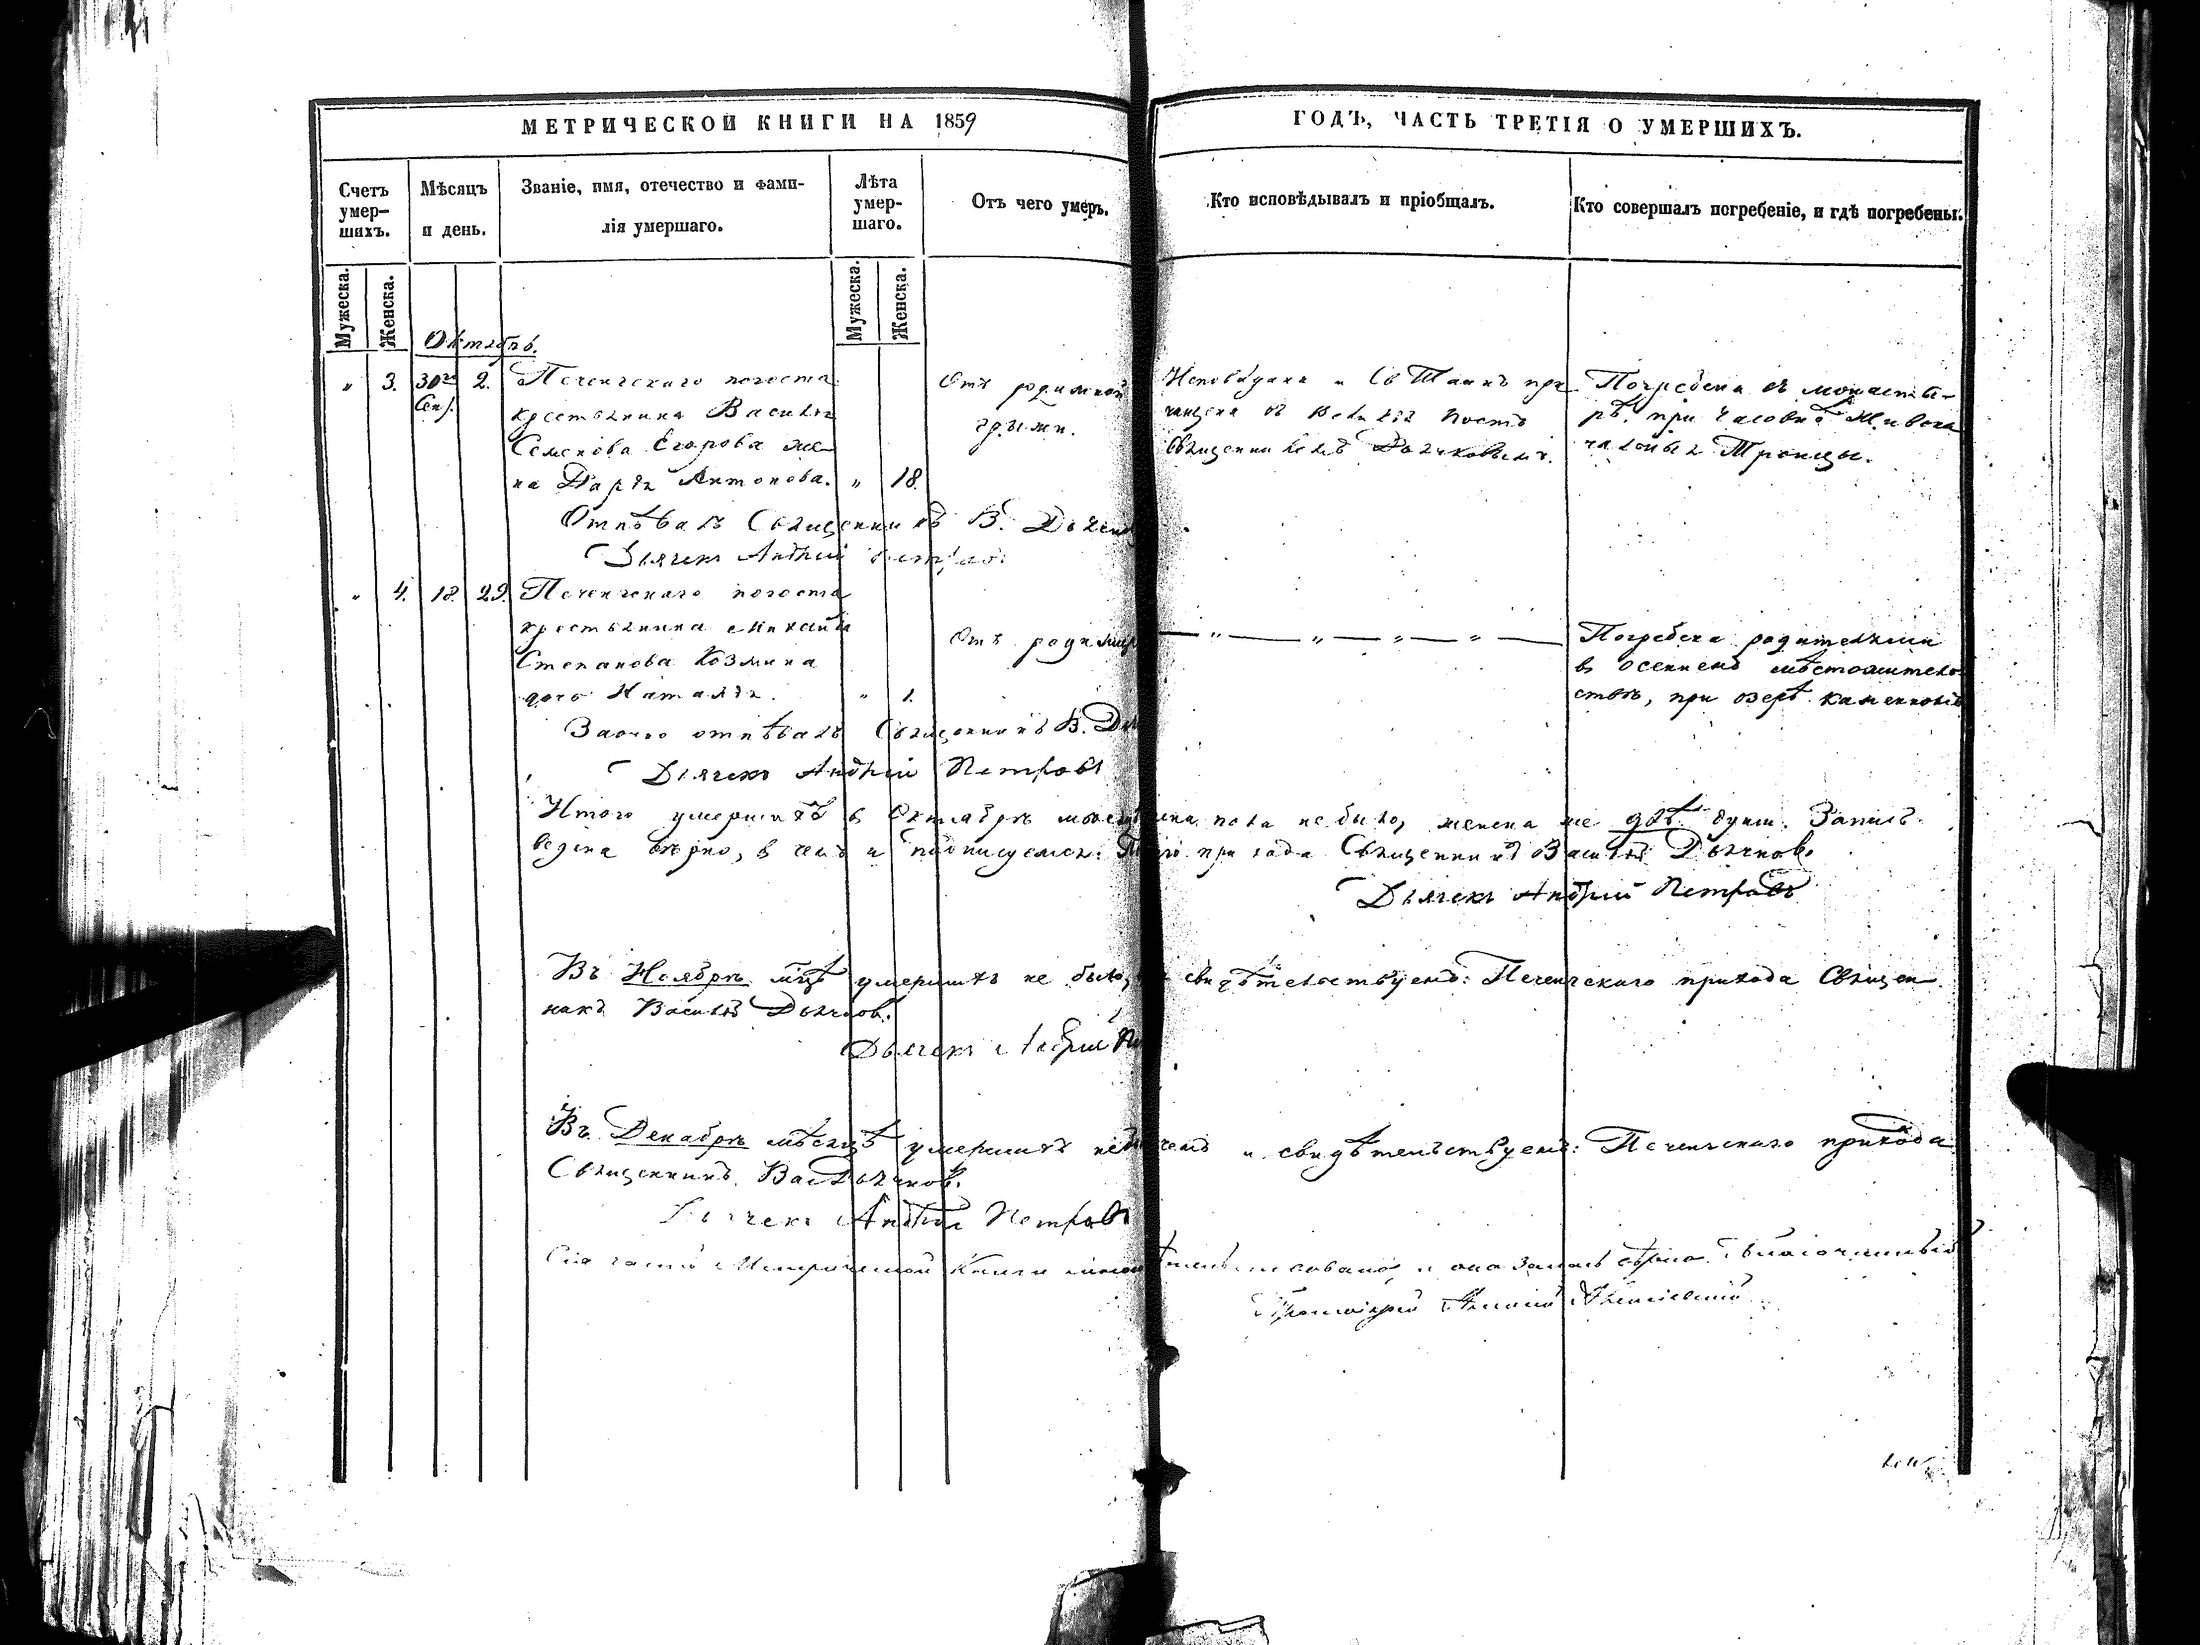 МЕТРИЧЕСКОЙ КНИГИ НА 1859
ГОДЪ, ЧАСТЬ ТРЕТІЯ О УМЕРШИХЪ.
Счетъ умер-
шихъ.
Мѣсяцъ
и день.
Званіе, имя, отечество и фами-
лія умершаго.
Лѣта
умер-
шаго.
Отъ чего умеръ.
Кто исповѣдывалъ и пріобщалъ.
Кто совершалъ погребеніе, и гдѣ погребены.
Мужеска.
Женска.
Мужеска.
Женска.
Октябрь.
" 3. 30го Сен. 2.
Печенгскаго погоста
крестьянина Василья
Семенова Егорова же-
на Дарья Антонова. " 18.
Отъ родимой
грыжи.
Исповѣдана и Св Таинъ при-
чащена въ Великій постъ
Священникомъ Дьячковымъ.
Погребена въ монасты-
рѣ при часовнѣ Живона
чальныя Троицы.
Отпѣвалъ Священникъ В. Дьячков
Дьячекъ Андрей Петровъ
" 4. 18. 29.
Печенгскаго погоста
крестьянина Михайла
Степанова Козмина
дочь Наталья. " 1.
Отъ родимца
— " — " — " — " —
Погребена родителями
въ осеннемъ мѣстожитель
ствѣ, при озерѣ Каменномъ
Заочно отпѣвалъ Священникъ В. Дьяч
Дьячекъ Андрей Петровъ
Итого умершихъ въ Октябрѣ мужеска пола не было, женска же двѣ души. Запись
ведена вѣрно, въ чемъ и подписуемся: прихода Священникъ Василій Дьячков.
Дьячекъ Андрей Петровъ
Въ Ноябрѣ мцѣ умершихъ не было, свидѣтельствуемъ: Печенгскаго прихода Священ
никъ Василій Дьячков.
Дьячекъ Андрей
Въ Декабрѣ мѣсяцѣ умершихъ чемъ и свидѣтельствуемъ: Печенгскаго прихода
Священникъ Вас Дьячков.
Дьячекъ Андрей Петровъ
Сія часть Метрической Книги вѣрно. Благочинный
Протоіерей